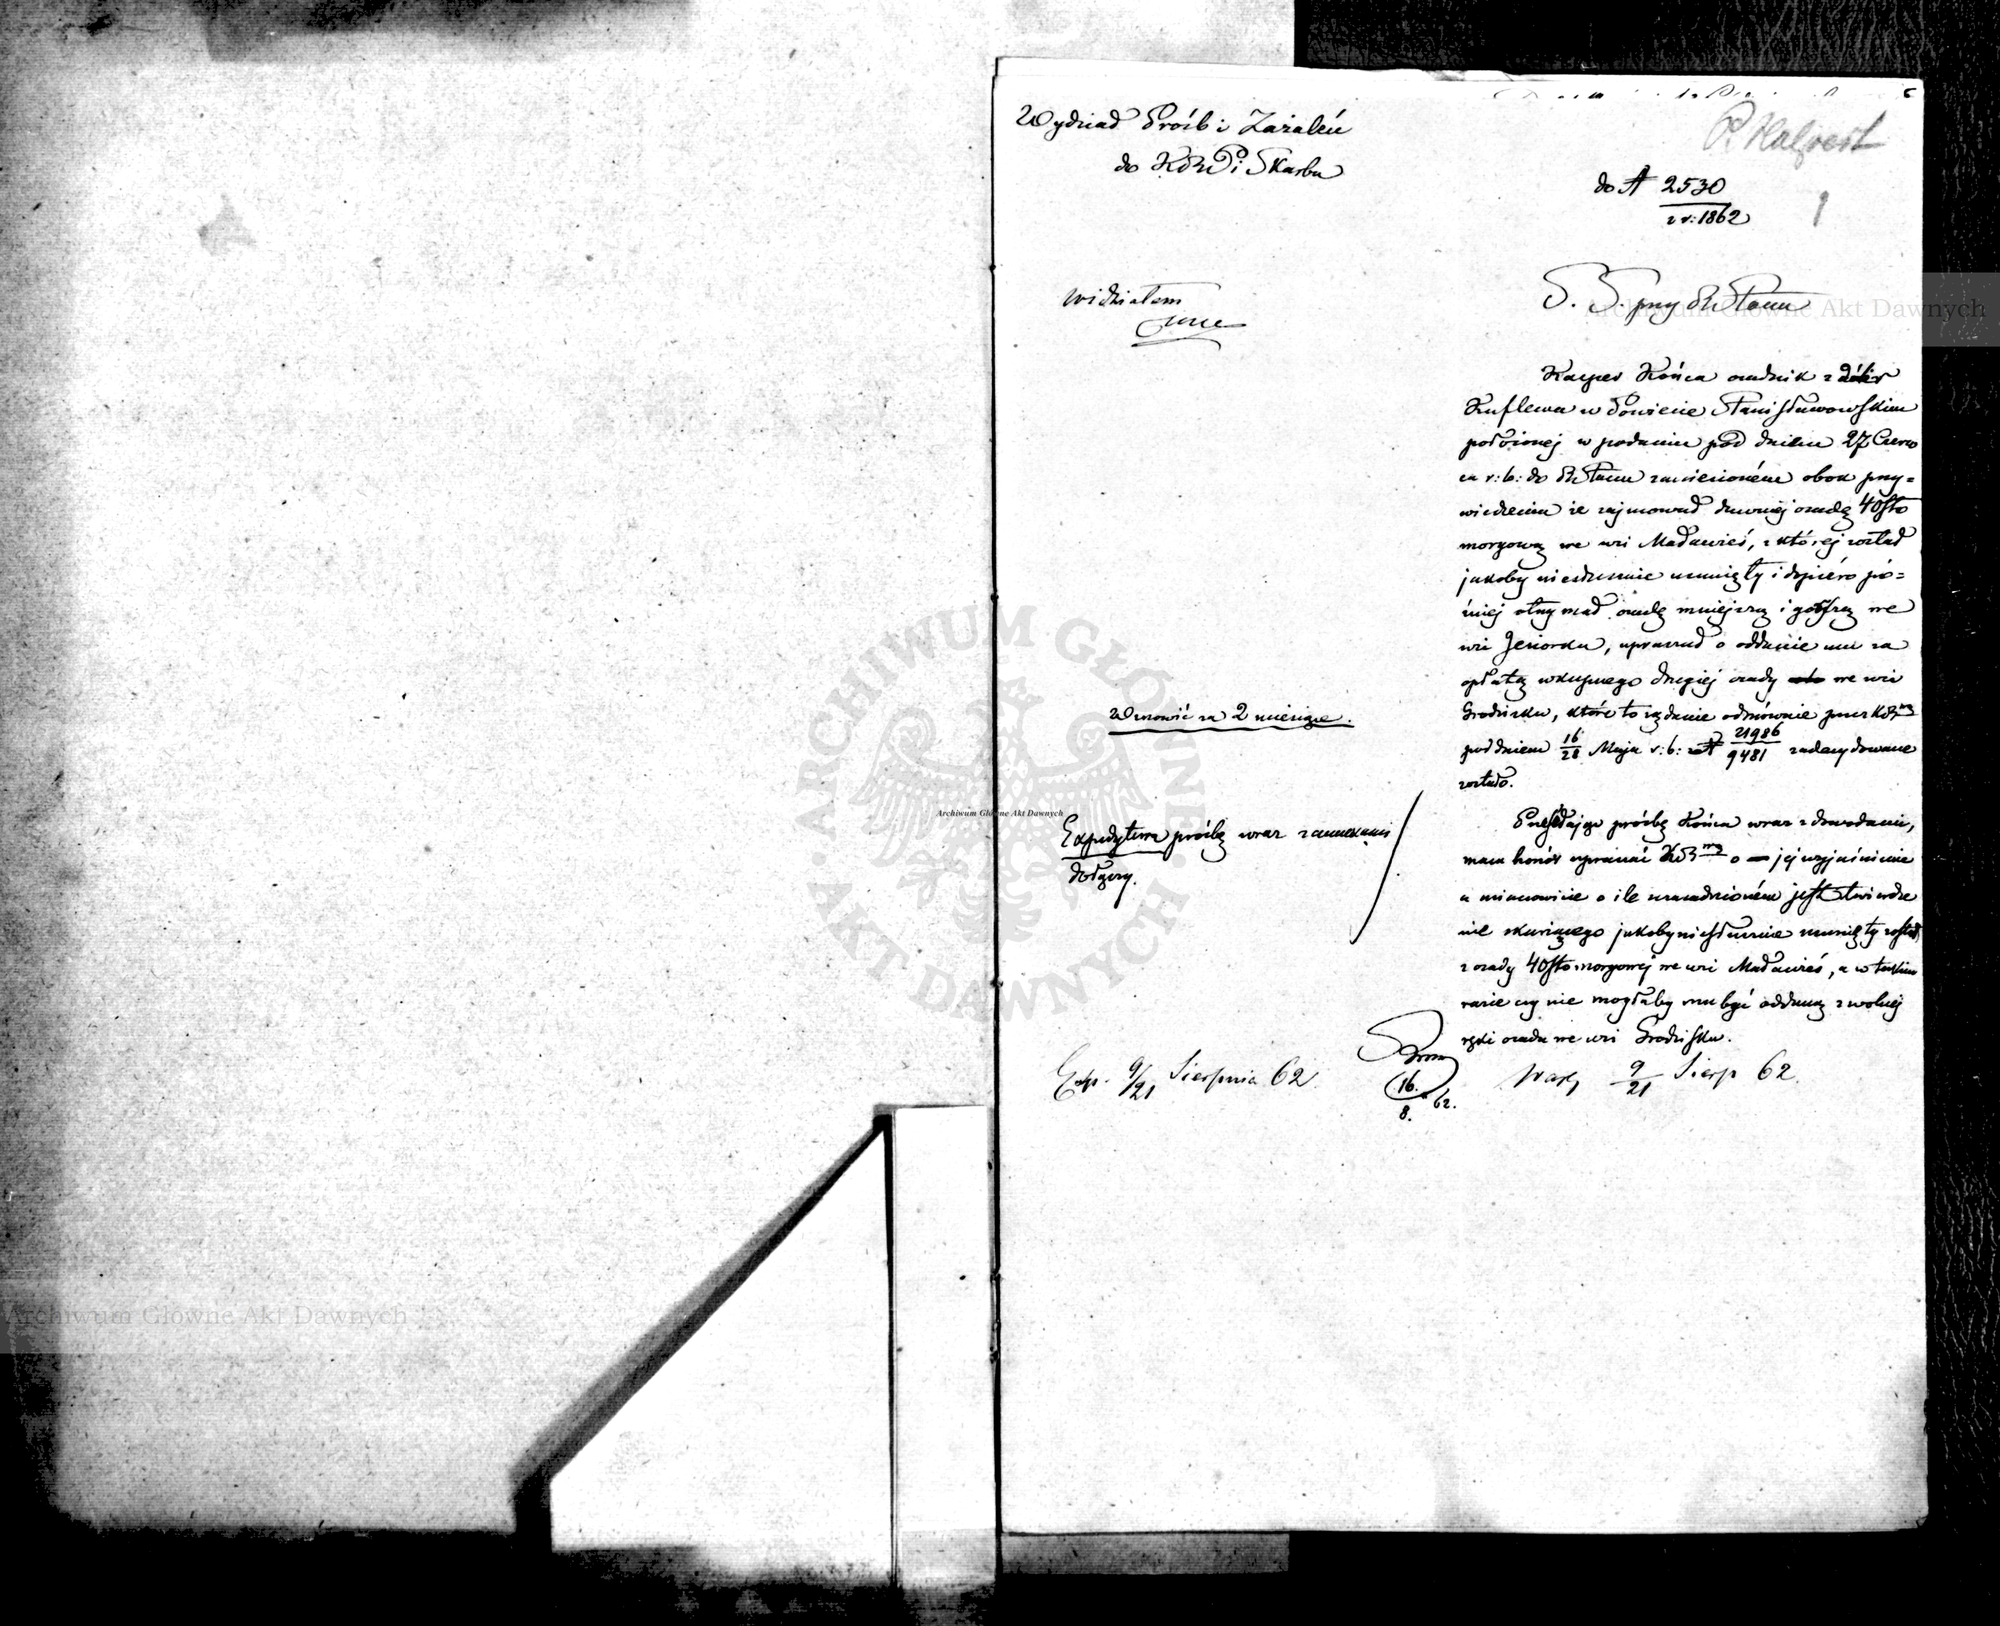 Wydział Próśb i Zażaleń
do KRP i Skarbu
P. Halpert
do № 2530
z r: 1862
1
widziałem
S. S. przy Rz Stanu
Kacper Końca osadnik z dóbr
Kuflewa w Powiecie Stanisławowskim
położonej w podaniu pod dniem 27 Czerw
ca r: b: do Rz Stanu zaniesioném obok przy=
wiedzenia że zajmował dawniej osadę 40sto
morgową we wsi Mała wieś, z któréj został
jakoby niesłusznie usunięty i dopiéro pó=
źniej otrzymał osadę mniejszą i gorszą we
wsi Jeziorku, upraszał o oddanie mu za
opłatą wkupnego drugiéj osady we wsi
Grodzisku, które to żądanie odmównie przez KRz
pod dniem 16/28 Maja r: b: za № 21986/9481 zadecydowane
zostało.
Wznowić za 2 miesiące.
Przesyłając prośbę Końca wraz z dowodami,
mam honor upraszać KRz o jéj wyjaśnienie
a mianowicie o ile uzasadnioném jest twierdze
nie skarżącego jakoby niesłusznie usunięty został
z osady 40sto morgowéj we wsi Mała wieś, a w takim
razie czy nie mogłaby mu być oddaną z wolnéj
ręki osada we wsi Grodzisku.
Expedytura prośbę wraz z annexami
dołączy.
Exp. 9/21 Sierpnia 62
16/8 62.
Warsz 9/21 Sierp 62.
Archiwum Główne Akt Dawnych
Archiwum Główne Akt Dawnych
Archiwum Główne Akt Dawnych
ARCHIWUM GŁÓWNE
AKT DAWNYCH